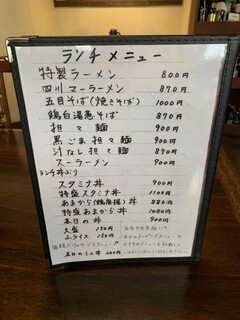 ランチメニュー
特製ラーメン 800円
四川マーラーメン 870円
五目そば(焼きそば) 1000円
鶏白湯葱そば 870円
担々麺 900円
黒ごま担々麺 900円
汁なし担々麺 870円
スーラーメン 900円
ランチ丼ぶり
スタミナ丼 900円
特盛スタミナ丼 1100円
あまから(鶏唐揚)丼 880円
特盛あまから丼 1080円
本日の丼 900円
大盛 150円
小ライス 150円
本日のミニ丼